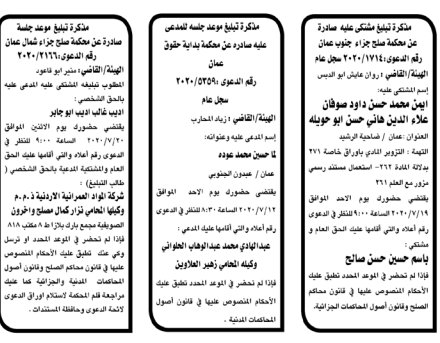 مذكرة تبليغ مشتكى عليه صادرة
عن محكمة صلح جزاء جنوب عمان
رقم الدعوى: ٢٠٢٠/١٧١٤ سجل عام
الهيئة/القاضي: روان عايش ابو الدبس
إسم المشتكى عليه:
ايمن محمد حسن داود صوفان
علاء الدين هاني حسن ابو حويله
العنوان: عمان / ضاحية الرشيد
التهمة : التزوير المادي باوراق خاصة ٢٧١
بدلالة المادة ٢٦٢- استعمال مستند رسمي
مزور مع العلم ٢٦١
يقتضي حضورك يوم الاحد الموافق
٢٠٢٠/٧/١٩ الساعة ٩:٠٠ للنظر في الدعوى
رقم أعلاه والتي أقامها عليك الحق العام و
مشتكي :
باسم حسين حسن صالح
فإذا لم تحضر في الموعد المحدد تطبق عليك
الأحكام المنصوص عليها في قانون محاكم
الصلح وقانون أصول المحاكمات الجزائية.
مذكرة تبليغ موعد جلسه للمدعى
عليه صادره عن محكمة بداية حقوق
عمان
رقم الدعوى: ٢٠٢٠/٥٣٥٩
سجل عام
الهيئة/القاضي : زياد المحارب
إسم المدعى عليه وعنوانه:
لما حسين محمد عوده
عمان / عبدون الجنوبي
يقتضي حضورك يوم الاحد الموافق
٢٠٢٠/٧/١٢ الساعة ٨:٣٠ للنظر في الدعوى
رقم أعلاه والتي أقامها عليك المدعي :
عبدالهادي محمد عبدالوهاب الحلواني
وكيله المحامي زهير العلاوين
فإذا لم تحضر في الموعد المحدد تطبق عليك
الأحكام المنصوص عليها في قانون أصول
المحاكمات المدنية .
مذكرة تبليغ موعد جلسة
صادرة عن محكمة صلح جزاء شمال عمان
رقم الدعوى: ٢٠٢٠/٢١٦٦
الهيئة/القاضي: منير ابو قاعود
المطلوب تبليغه المشتكى عليه المدعى عليه
بالحق الشخصي :
اديب غالب اديب ابو جابر
يقتضي حضورك يوم الاثنين الموافق
٢٠٢٠/٧/٢٠ الساعة ٩:٠٠ للنظر في
الدعوى رقم أعلاه والتي أقامها عليك الحق
العام والمشتكية المدعية بالحق الشخصي (
طالب التبليغ) :
شركة المواد العمرانية الاردنية ذ.م.م
وكيلها المحامي نزار كمال مصلح واخرون
الصويفية مجمع بارك بلازا ط ٨ مكتب ٨١٨
فإذا لم تحضر في الموعد المحدد او ترسل
وكي عنك تطبق عليك الأحكام المنصوص
عليها في قانون محاكم الصلح وقانون أصول
المحاكمات المدنية والجزائية كما عليك
مراجعة قلم المحكمة لاستلام اوراق الدعوى
لائحة الدعوى وحافظة المستندات .